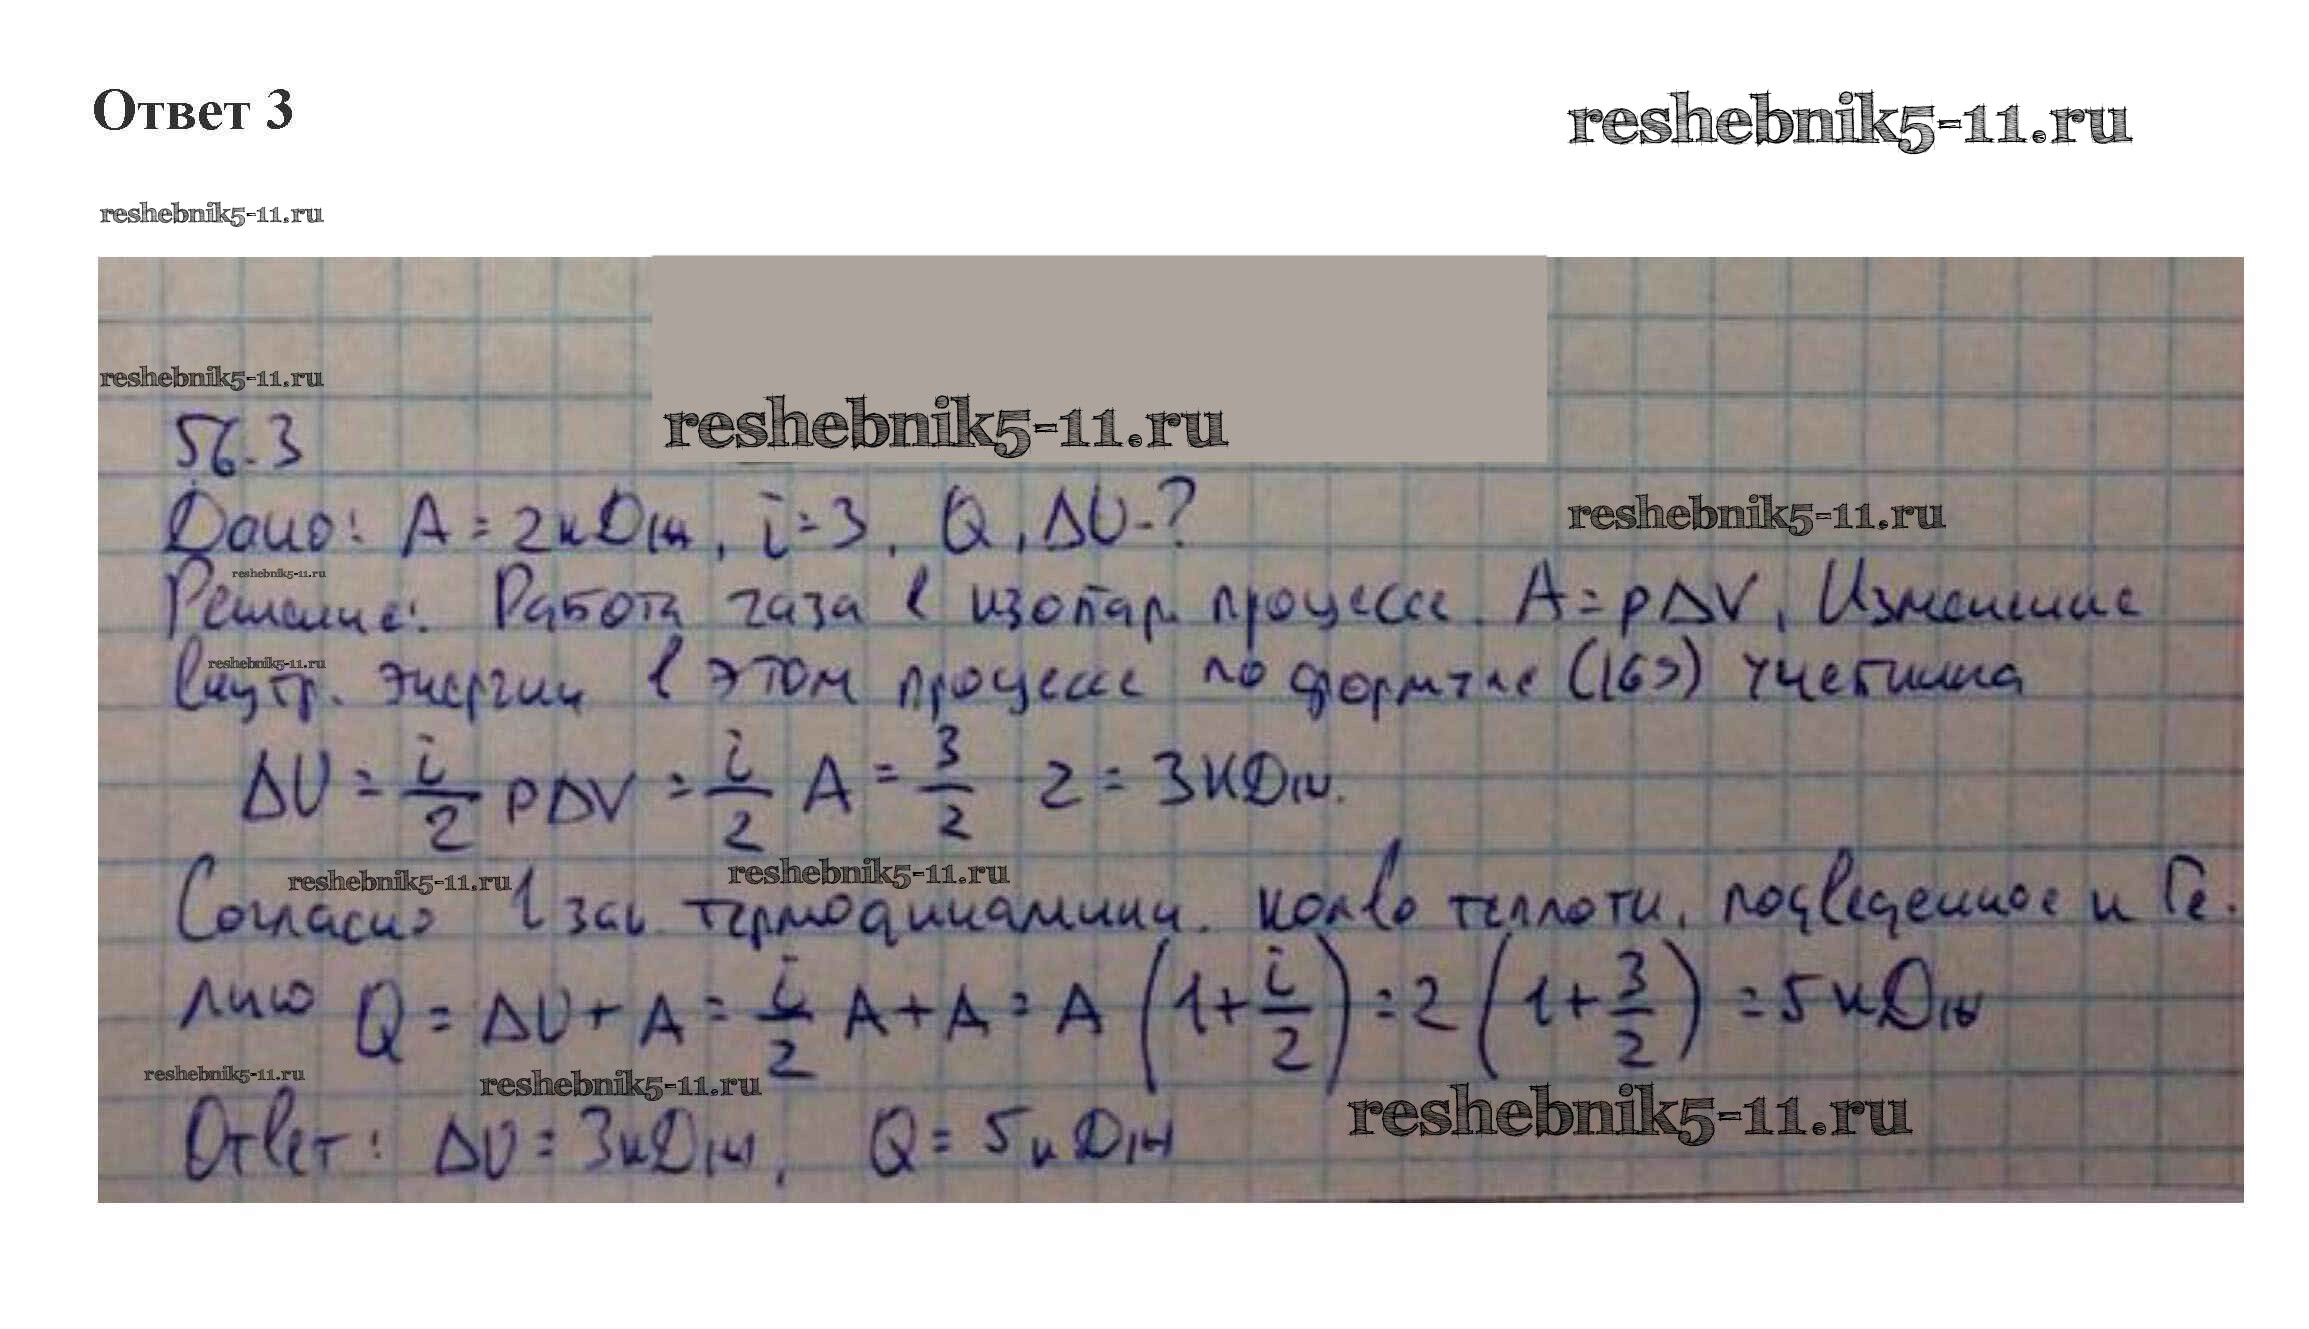 Ответ 3
reshebnik5-11.ru
reshebnik5-11.ru
reshebnik5-11.ru
reshebnik5-11.ru
56.3
Дано: A = 2кДж, i=3, Q, ΔU-?
reshebnik5-11.ru
reshebnik5-11.ru
Решение: Работа газа в изобар. процессе A=pΔV, Изменение
reshebnik5-11.ru
внутр. энергии в этом процессе по формуле (163)
ΔU = i/2 pΔV = i/2 A = 3/2 2 = 3кДж.
reshebnik5-11.ru
reshebnik5-11.ru
Согласно 1 зак. термодинамики. кол-во теплоты, подведенное к Ге-
лию Q = ΔU + A = i/2 A + A = A (1+i/2) = 2 (1+3/2) = 5кДж
reshebnik5-11.ru
reshebnik5-11.ru
reshebnik5-11.ru
Ответ: ΔU = 3кДж, Q = 5кДж